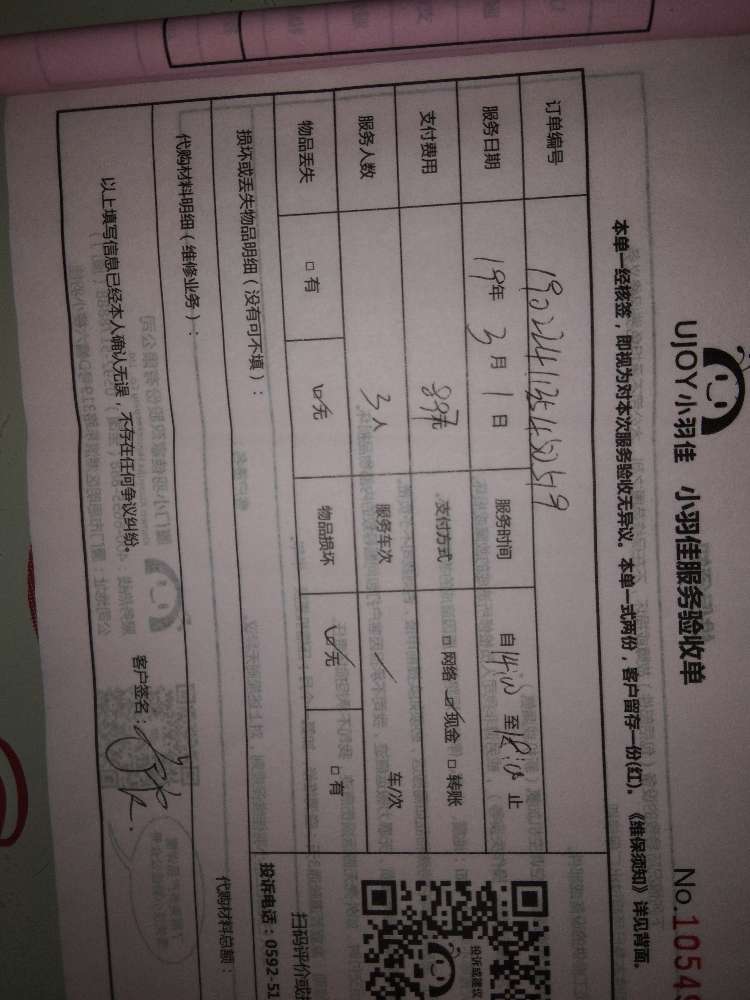 UJOY小羽佳 小羽佳服务验收单
No.1054
本单一经核签，即视为对本次服务验收无异议。本单一式两份，客户留存一份(红)。《维保须知》详见背面。
订单编号
服务日期 19年 3月 1日 服务时间 自14:00 至18:00 止
支付费用 支付方式 □ 网络 ☑ 现金 □ 转账
服务人数 3人 服务车次 / 车/次
物品丢失 □ 有 ☑ 无 物品损坏 ☑ 无 □ 有
损坏或丢失物品明细（没有可不填）：
代购材料明细（维修业务）： 代购材料总额：
投诉或建议
扫码评价或
投诉电话：0592-51
以上填写信息已经本人确认无误，不存在任何争议纠纷。
客户签名：